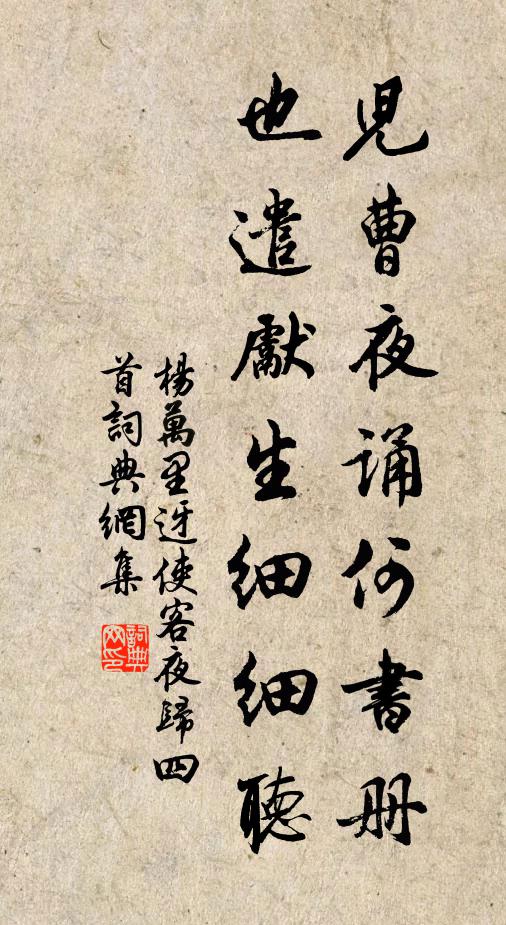 児曹夜誦何書册
也遣獻生細細聽
楊萬里迓使客夜歸四
首詞典網集
詞典网印